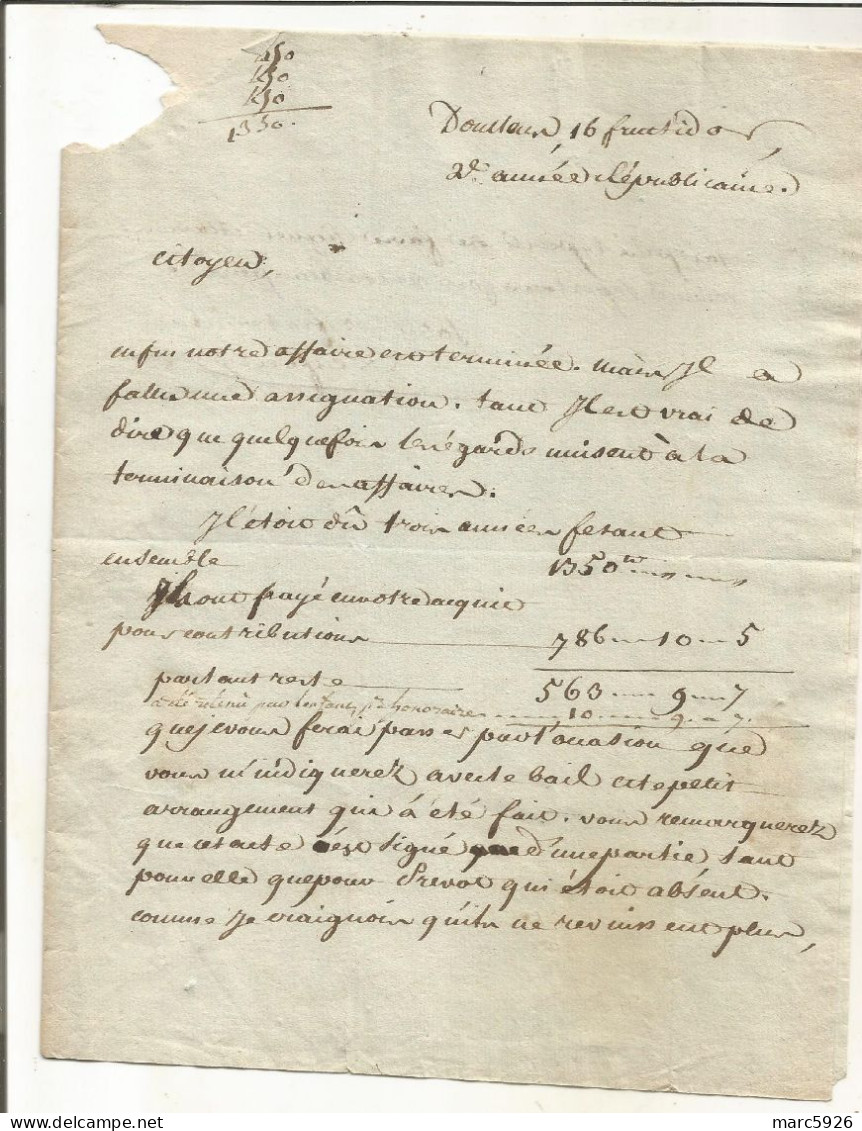 450
450
450
1350.
Doullens, 16 fructidor,
2e. année Républicaine.
citoyen,
enfin notre affaire est terminée. mais Jl a
fallu une assignation. tant Jl est vrai de
dire que quelquefois les égards nuisent à la
terminaison des affaires.
Jl étoit dû trois années fesant
ensemble 1350tt
Jls ont payé en votre acquit
pour contributions 786 - 10 - 5
partant reste 563 - 9 - 7
honoraires 10 - 9 - 7.
que je vous ferai passer par l'occasion que
vous m'indiquerez avec le bail et le petit
arrangement qui à été fait. vous remarquerez
que cet acte n'est signé que d'une partie tant
pour elle que pour Prevot qui étoit absent.
comme Je craignois qu'ils ne revinssent plus,
marc5926